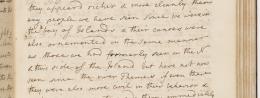 they appeard richer & more cleanly than
any people we have seen since we were in
the bay of Islands & their canoes were
also ornamented in the same manner
as those we had formerly seen in the N
this side of the Island but have not now
seen since the river Thames if even there
they were also more civil in their behavior &
immediately